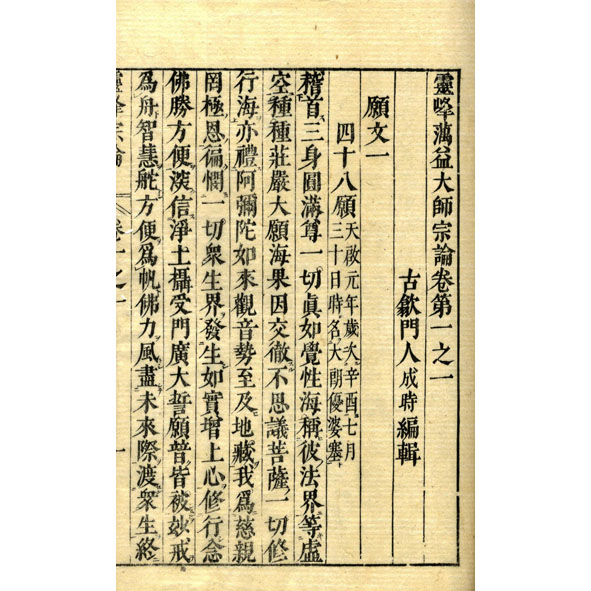 靈峰蕅益大師宗論卷第一之一
古歙門人成時編輯
願文一
四十八願天啟元年歲次辛酉七月
三十日時名大朗優婆塞
稽首三身圓滿尊一切眞如覺性海稱彼法界等虛
空種種莊嚴大願海果因交徹不思議菩薩一切修
行海亦禮阿彌陀如來觀音勢至及地藏我爲慈親
罔極恩徧憫一切衆生界發生如實增上心修行念
佛勝方便深信淨土攝受門廣大誓願普皆被玅戒
爲舟智慧舵方便爲帆佛力風盡未來際渡衆生終
靈峰宗論 卷一之一 一